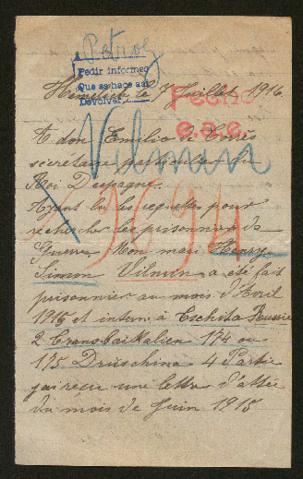 Petroz
Pedir informes
Que se hace así
Devolver
Himeling le 7 Juillet 1916
Fecho
e.a.c.
Vilmin
1694
A don Emilio de
secrétaire particulier du
Roi Despagne.
Ayant lu les requettes pour
rechercher les prisonniers de
Guerre Mon mari
Simon Vilmin a été fait
prisonnier au mois d'Avril
1915 et interné à Tschita Russie
2 Transbaikalien 174 ou
175 Druschina 4 Partie
j'ai reçue une lettre d'
du mois de Juin 1915